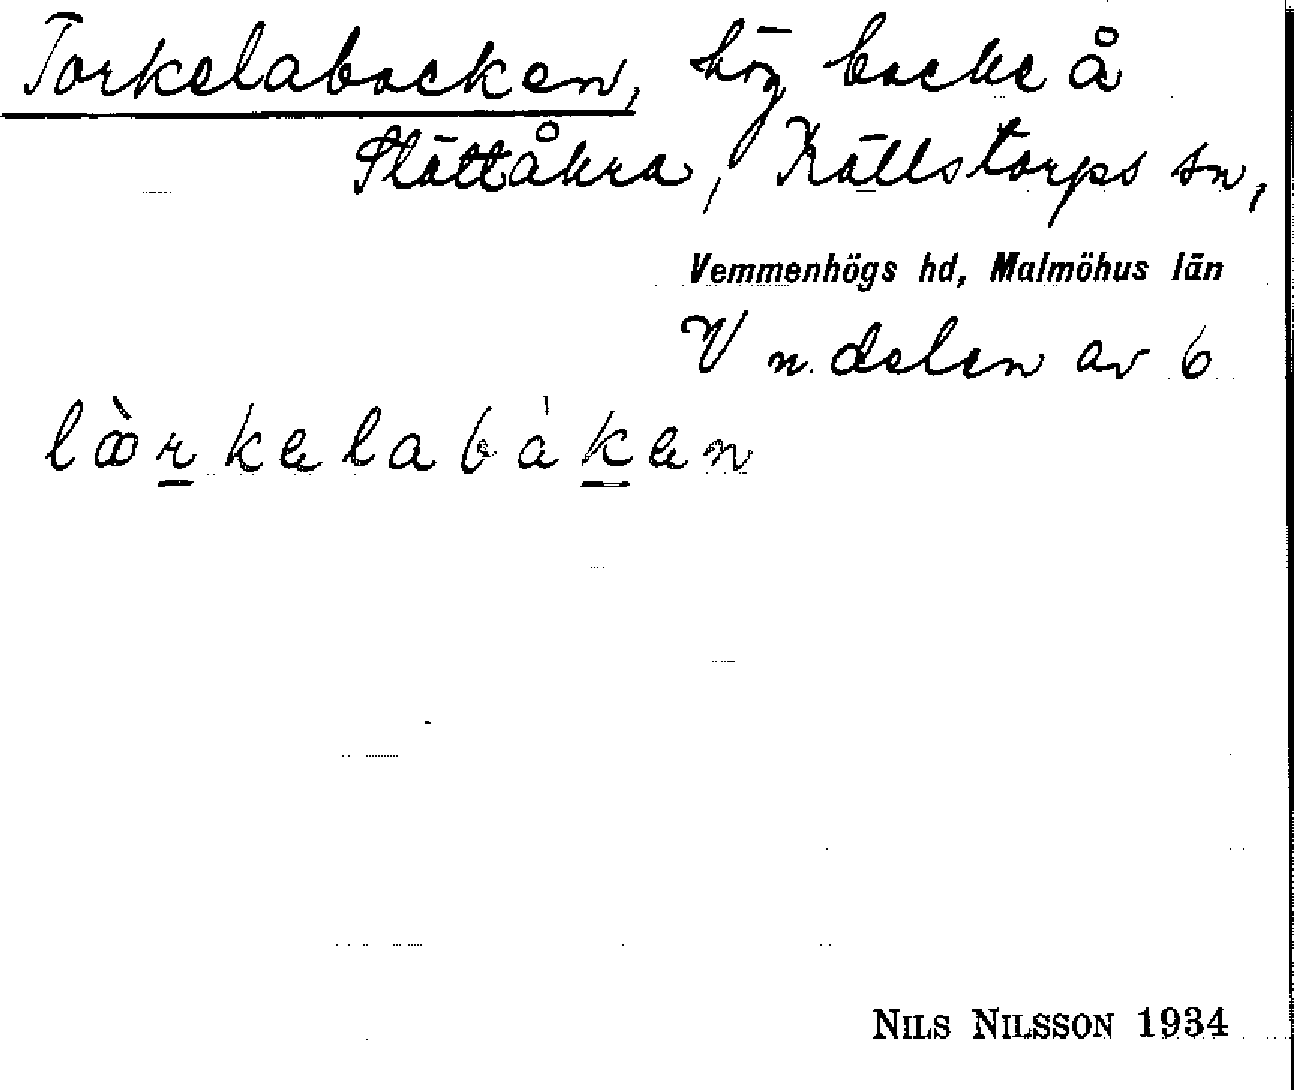 Torkelabacken, hög backe å
Slättåkra, Källstorps sn,
Vemmenhögs hd, Malmöhus län
V n. delen av 6
lòrkelabàken
NILS NILSSON 1934